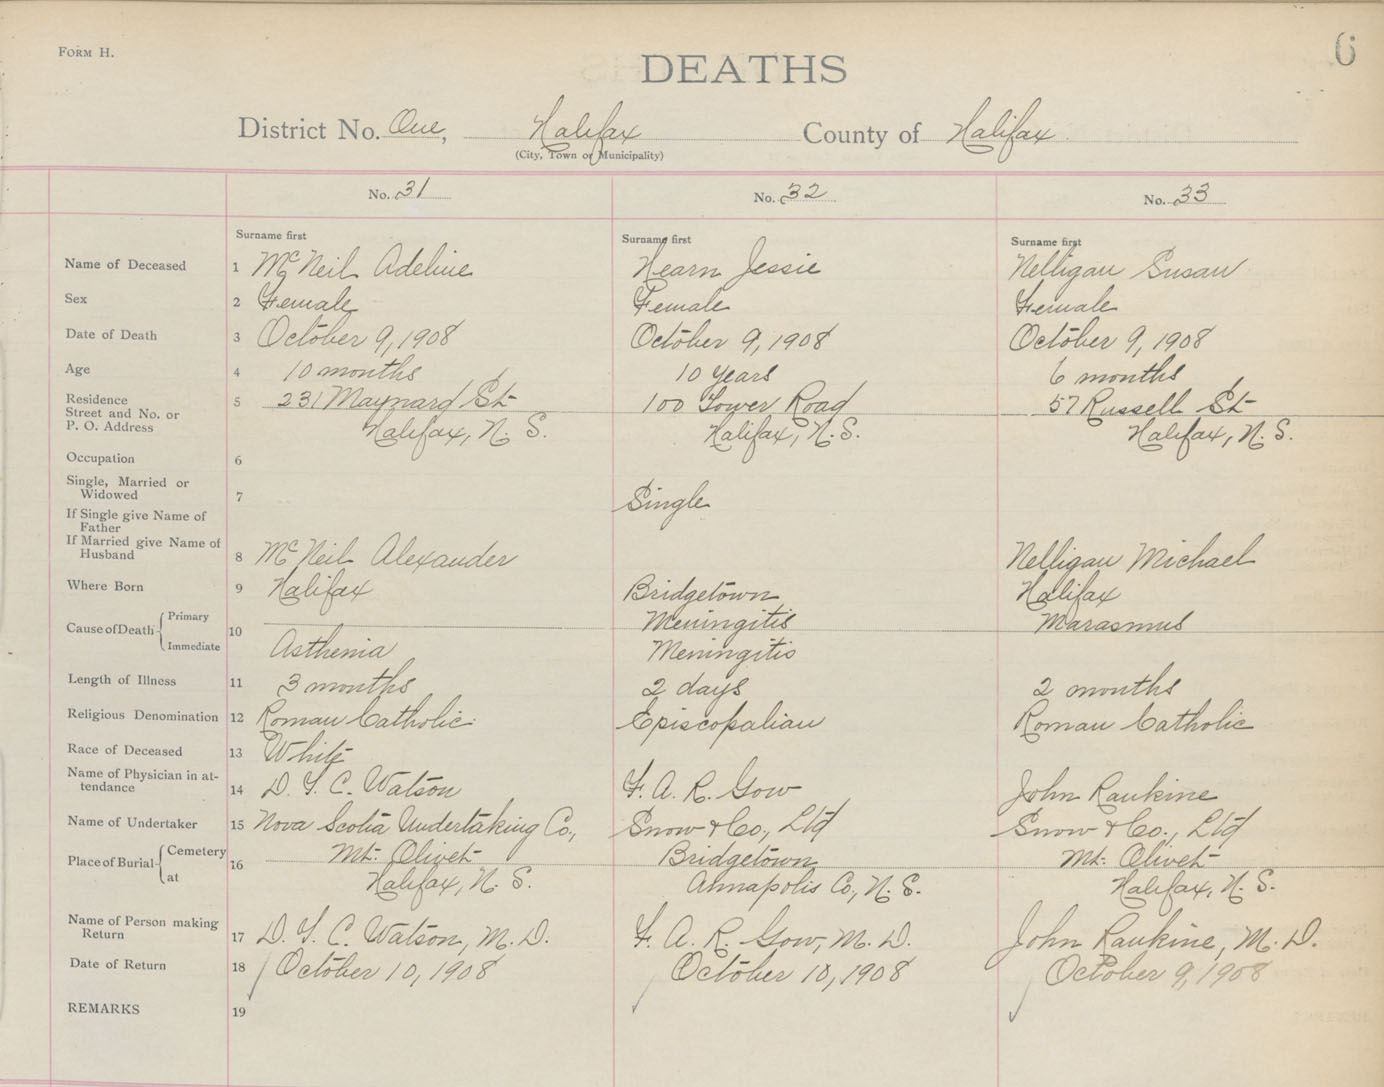 FORM H.
6
DEATHS
District No. One, Halifax County of Halifax
(City, Town or Municipality)
No. 31 No. 32 No. 33
Surname first Surname first Surname first
Name of Deceased 1 McNeil Adeline Hearn Jessie Nelligan Susan
Sex 2 Female Female Female
Date of Death 3 October 9, 1908 October 9, 1908 October 9, 1908
Age 4 10 months 10 years 6 months
Residence 5 231 Maynard St 100 Tower Road 57 Russell St
Street and No. or
P. O. Address Halifax, N. S. Halifax, N. S. Halifax, N. S.
Occupation 6
Single, Married or
Widowed 7 Single
If Single give Name of
Father
If Married give Name of
Husband 8 McNeil Alexander Nelligan Michael
Where Born 9 Halifax Bridgetown Halifax
Cause of Death 10 Primary Meningitis Marasmus
Immediate Asthenia Meningitis
Length of Illness 11 3 months 2 days 2 months
Religious Denomination 12 Roman Catholic Episcopalian Roman Catholic
Race of Deceased 13 White
Name of Physician in at-
tendance 14 D. T. C. Watson F. A. R. Gow John Rankine
Name of Undertaker 15 Nova Scotia Undertaking Co., Snow & Co., Ltd Snow & Co., Ltd
Place of Burial 16 Cemetery Mt. Olivet Bridgetown Mt. Olivet
at Halifax, N. S. Annapolis Co., N. S. Halifax, N. S.
Name of Person making
Return 17 D. T. C. Watson, M. D. F. A. R. Gow, M. D. John Rankine, M. D.
Date of Return 18 October 10, 1908 October 10, 1908 October 9, 1908
REMARKS 19